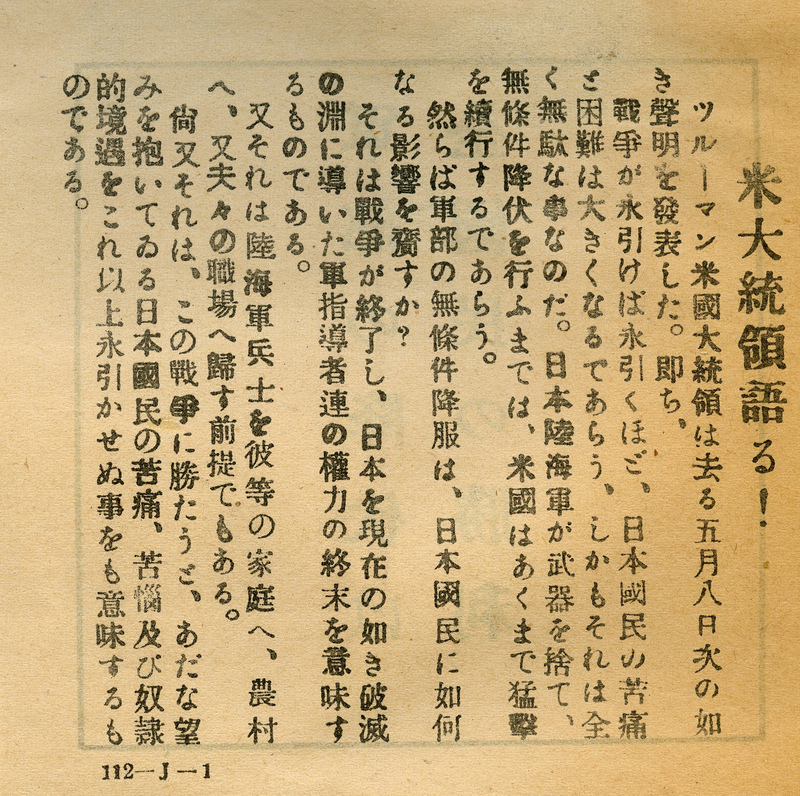 米大統領語る！
ツルーマン米國大統領は去る五月八日次の如
き聲明を發表した。即ち、
戰爭が永引けば永引くほど、日本國民の苦痛
と困難は大きくなるであらう、しかもそれは全
く無駄な事なのだ。日本陸海軍が武器を捨て、
無條件降伏を行ふまでは、米國はあくまで猛擊
を續行するであらう。
然らば軍部の無條件降服は、日本國民に如何
なる影響を齎すか？
それは戰爭が終了し、日本を現在の如き破滅
の淵に導いた軍指導者連の權力の終末を意味す
るものである。
又それは陸海軍兵士を彼等の家庭へ、農村
へ、又夫々の職場へ歸す前提でもある。
尙又それは、この戰爭に勝たうと、あだな望
みを抱いてゐる日本國民の苦痛、苦惱及び奴隷
的境遇をこれ以上永引かせぬ事をも意味するも
のである。
112—J—1